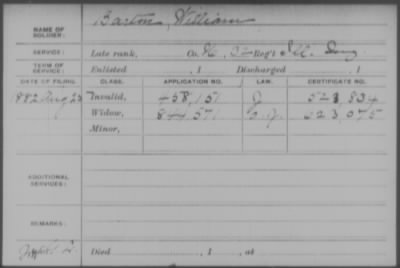 NAME OF SOLDIER: Barton, William
SERVICE: Late rank, Co. K, 32 Reg't Ill. Inf.
TERM OF SERVICE: Enlisted , 1 Discharged , 1
DATE OF FILING. CLASS. APPLICATION NO. LAW. CERTIFICATE NO.
1882 Aug 23 Invalid, 458,151 J 528,834
Widow, 844,571 G. J. 623,075
Minor,
ADDITIONAL SERVICES:
REMARKS:
Died , 1 , at